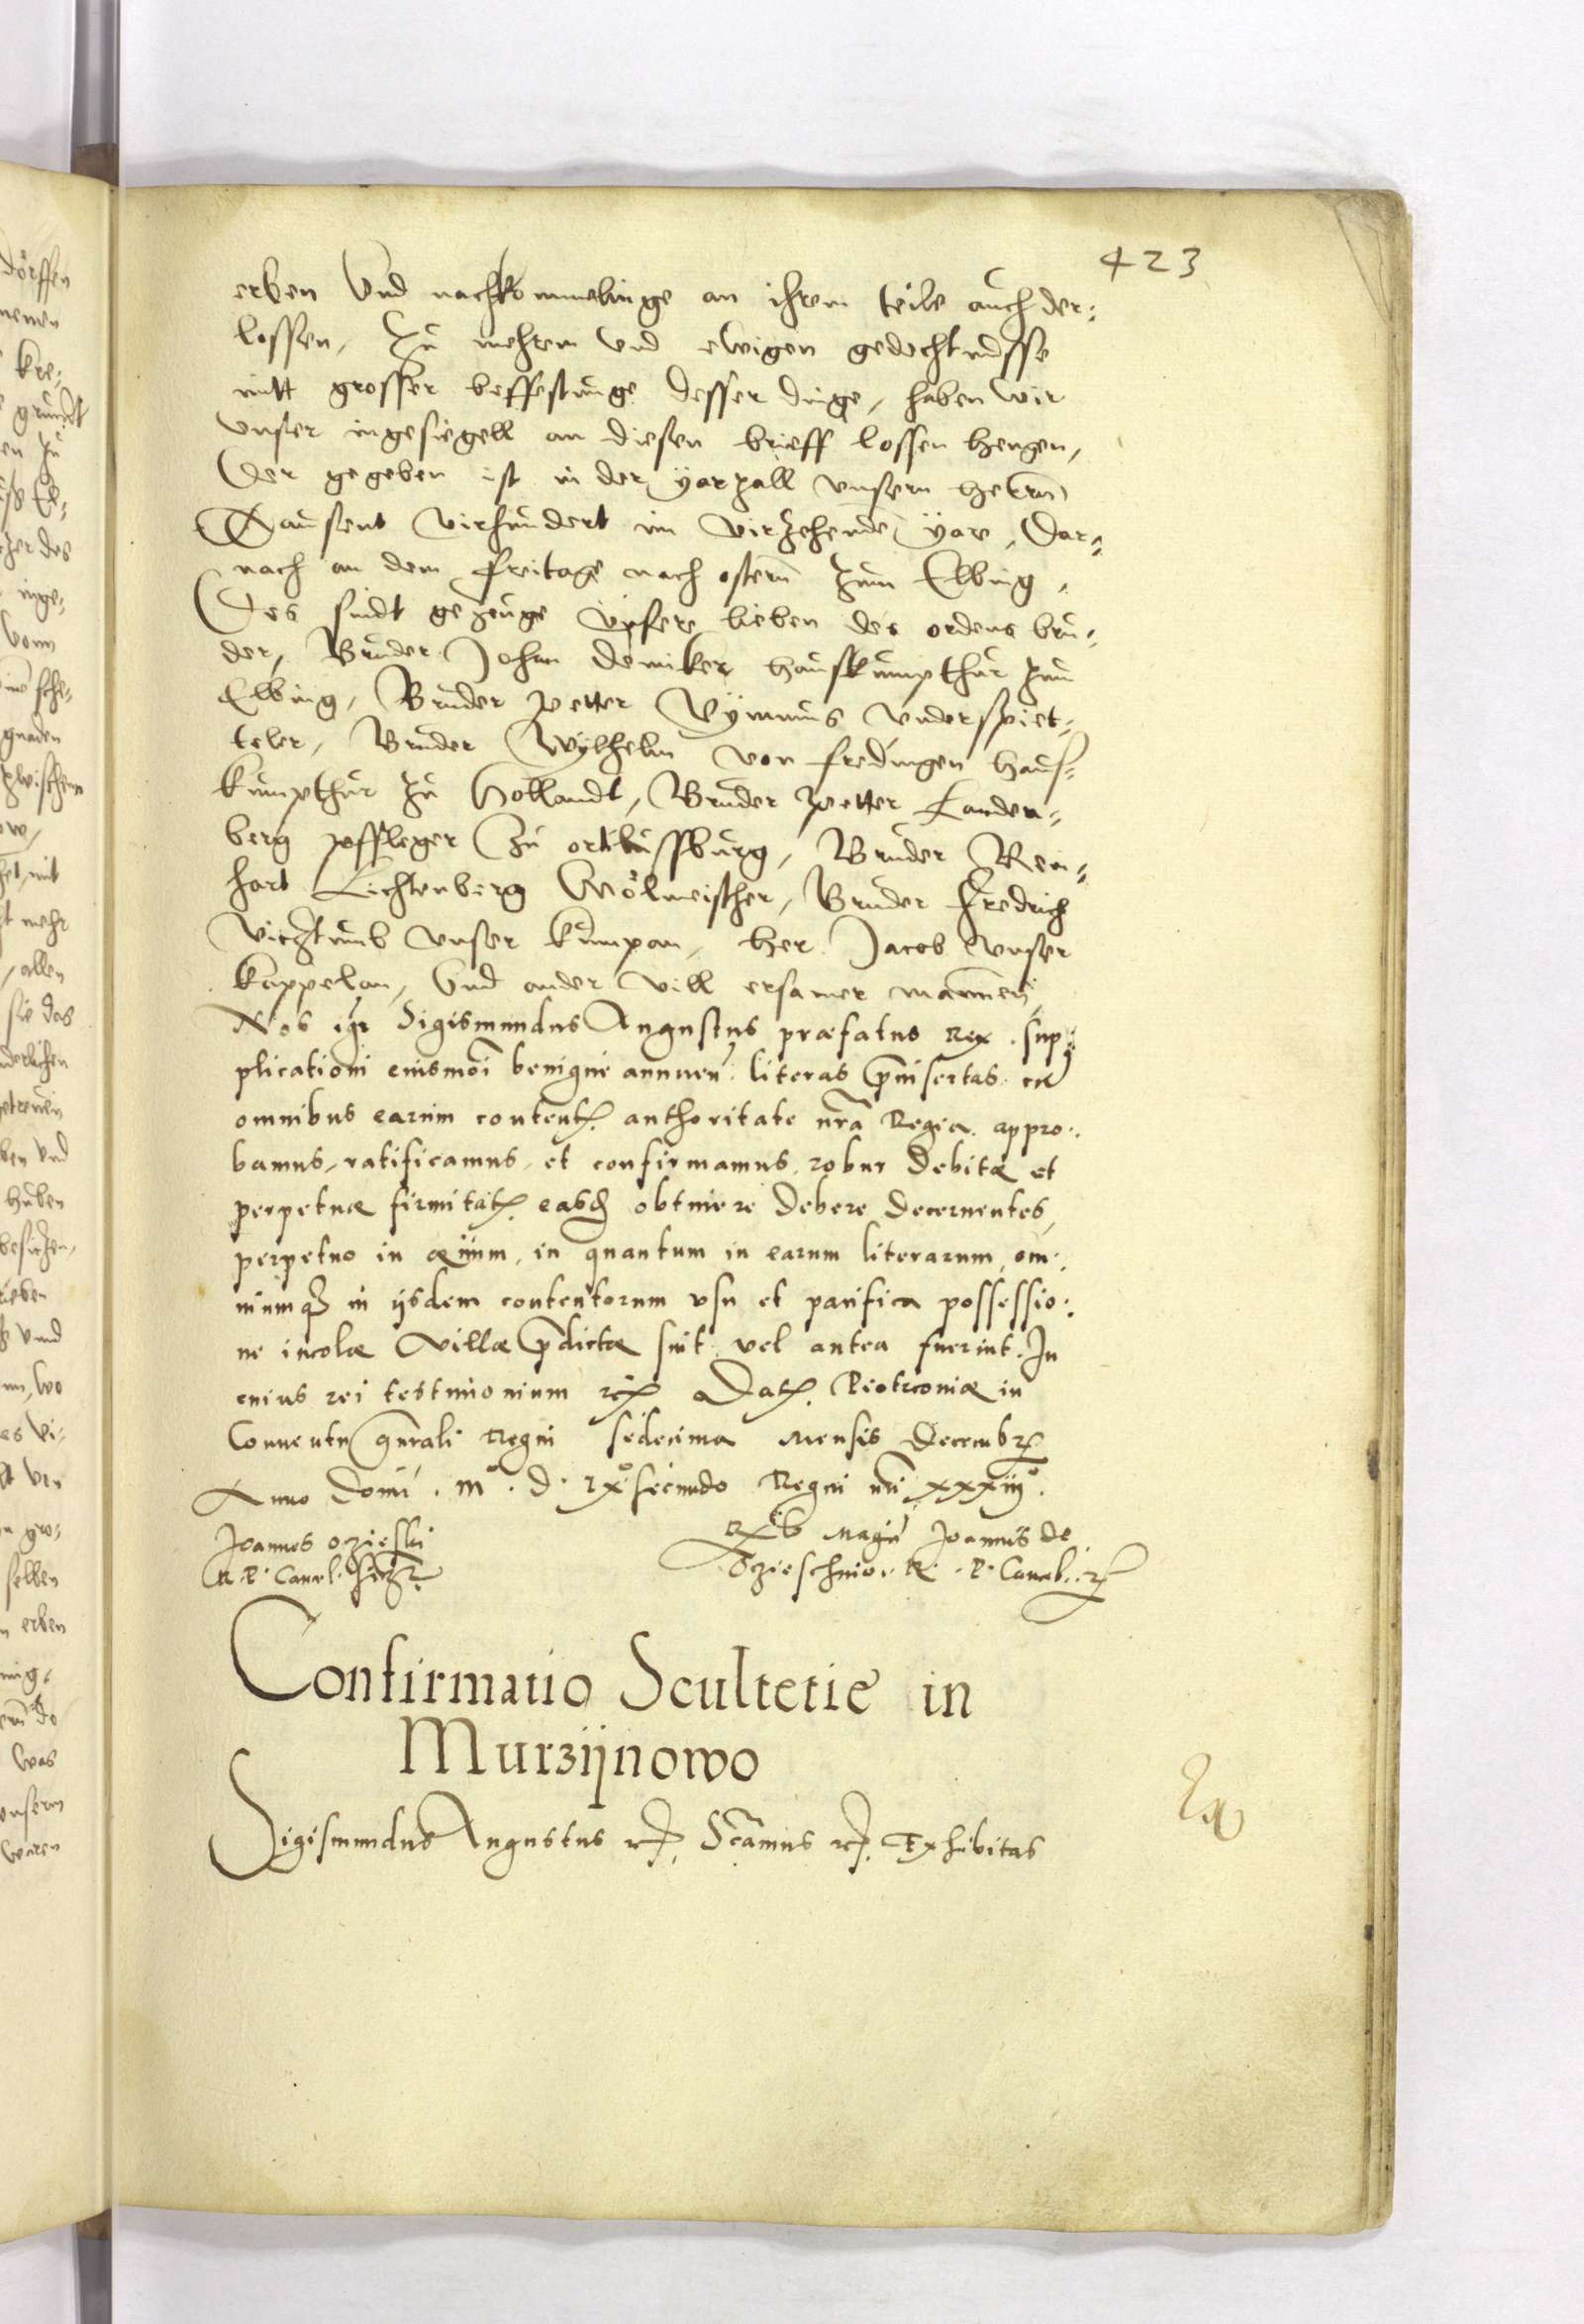 423
erben Vnd nachkommelinge an ihrem teile auch der:
lossen, Zu mehrem vnd ewigen gedechtnisse
mitt grosser beffestunge desser dinge, haben wir
vnser ingesiegell an diesen brieff lossen hengen,
Der gegeben ist in der yarzall vnsern herrn
Tausent virhundert im virzehende yare, Dar:
nach an dem freitage nach ostern zum Elbing,
Des sindt gezeuge vnsere lieben des ordens bru:
der, Bruder Johan hauskumpthur zum
Elbing, Bruder petter vnderspiet:
teler, Bruder Wylhelm von fredingen haus:
kumpthur zu Hollandt, Bruder petter Landen:
berg pffleger Zu ortelssburg, Bruder Rein:
hart Lichtenberg Mölmeischer, Bruder Fredrich
Vicztumb vnser kumpan, her Jacob vnser
kappelan, Vnd ander vill ersamer mannen,
Nos igr Sigismundus Augustus præfatus Rex, sup:
plicationi eiusmoi benigne annuen: literas pinsertas cu
omnibus earum content. authoritate nra Regia appro:
bamus, ratificamus, et confirmamus, robur debitæ et
perpetuæ firmitat. easq obtinere debere decernentes,
perpetuo in æuum, in quantum in earum literarum, om:
niumq in ijsdem contentorum vsu et pacifica possessio:
ne incolæ villæ pdictæ sint vel antea fuerint. In
cuius rei testimonium etc. Dat. Piotrconiæ in
Conuentu gnrali Regni sedecima mensis Decembr
Anno Domi. mo. d. lxo. secundo Regni nri xxxiijo.
Joannes ozieski
R. P. Cancel. sszt
Rel. Magci Joannis de
Ozieschnio. R. P. Cancel. etc
Confirmatio Scultetie in
Murzijnowo
Sigismundus Augustus etc. Scamus etc. Exhibitas